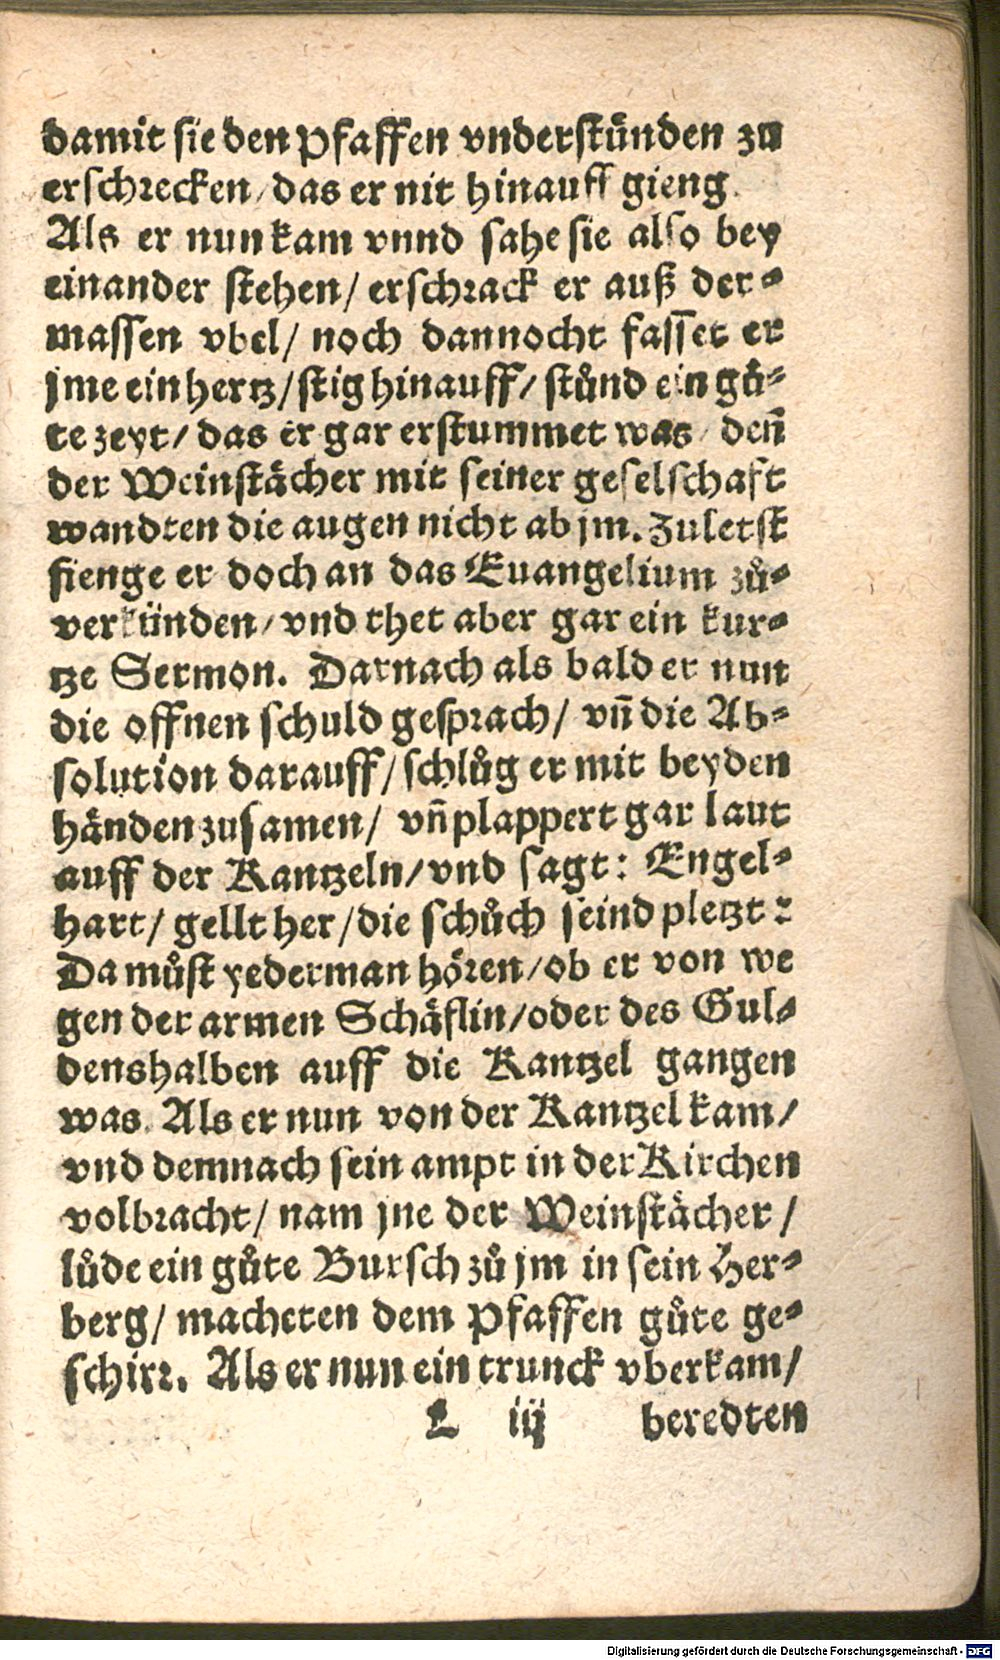 damit sie den Pfaffen vnderstünden zu
erschrecken / das er nit hinauff gieng.
Als er nun kam vnnd sahe sie also bey
einander stehen / erschrack er auß der⸗
massen vbel / noch dannocht fasset er
jme ein hertz / stig hinauff / stůnd ein gů⸗
te zeyt / das er gar erstummet was / deñ
der Weinstächer mit seiner geselschaft
wandten die augen nicht ab jm. Zuletst
fienge er doch an das Euangelium zů⸗
verkünden / vnd thet aber gar ein kur⸗
tze Sermon. Darnach als bald er nun
die offnen schuld gesprach / vñ die Ab⸗
solution darauff / schlůg er mit beyden
händen zusamen / vñ plappert gar laut
auff der Kantzeln / vnd sagt: Engel⸗
hart / gellt her / die schůch seind pletzt:
Da můst yederman hören / ob er von we
gen der armen Schäflin / oder des Gul⸗
denshalben auff die Kantzel gangen
was. Als er nun von der Kantzel kam /
vnd demnach sein ampt in der Kirchen
volbracht / nam jne der Weinstächer /
lůde ein gůte Bursch zů jm in sein Her⸗
berg / macheten dem Pfaffen gůte ge⸗
schirr. Als er nun ein trunck vberkam /
L iij beredten
Digitalisierung gefördert durch die Deutsche Forschungsgemeinschaft - DFG